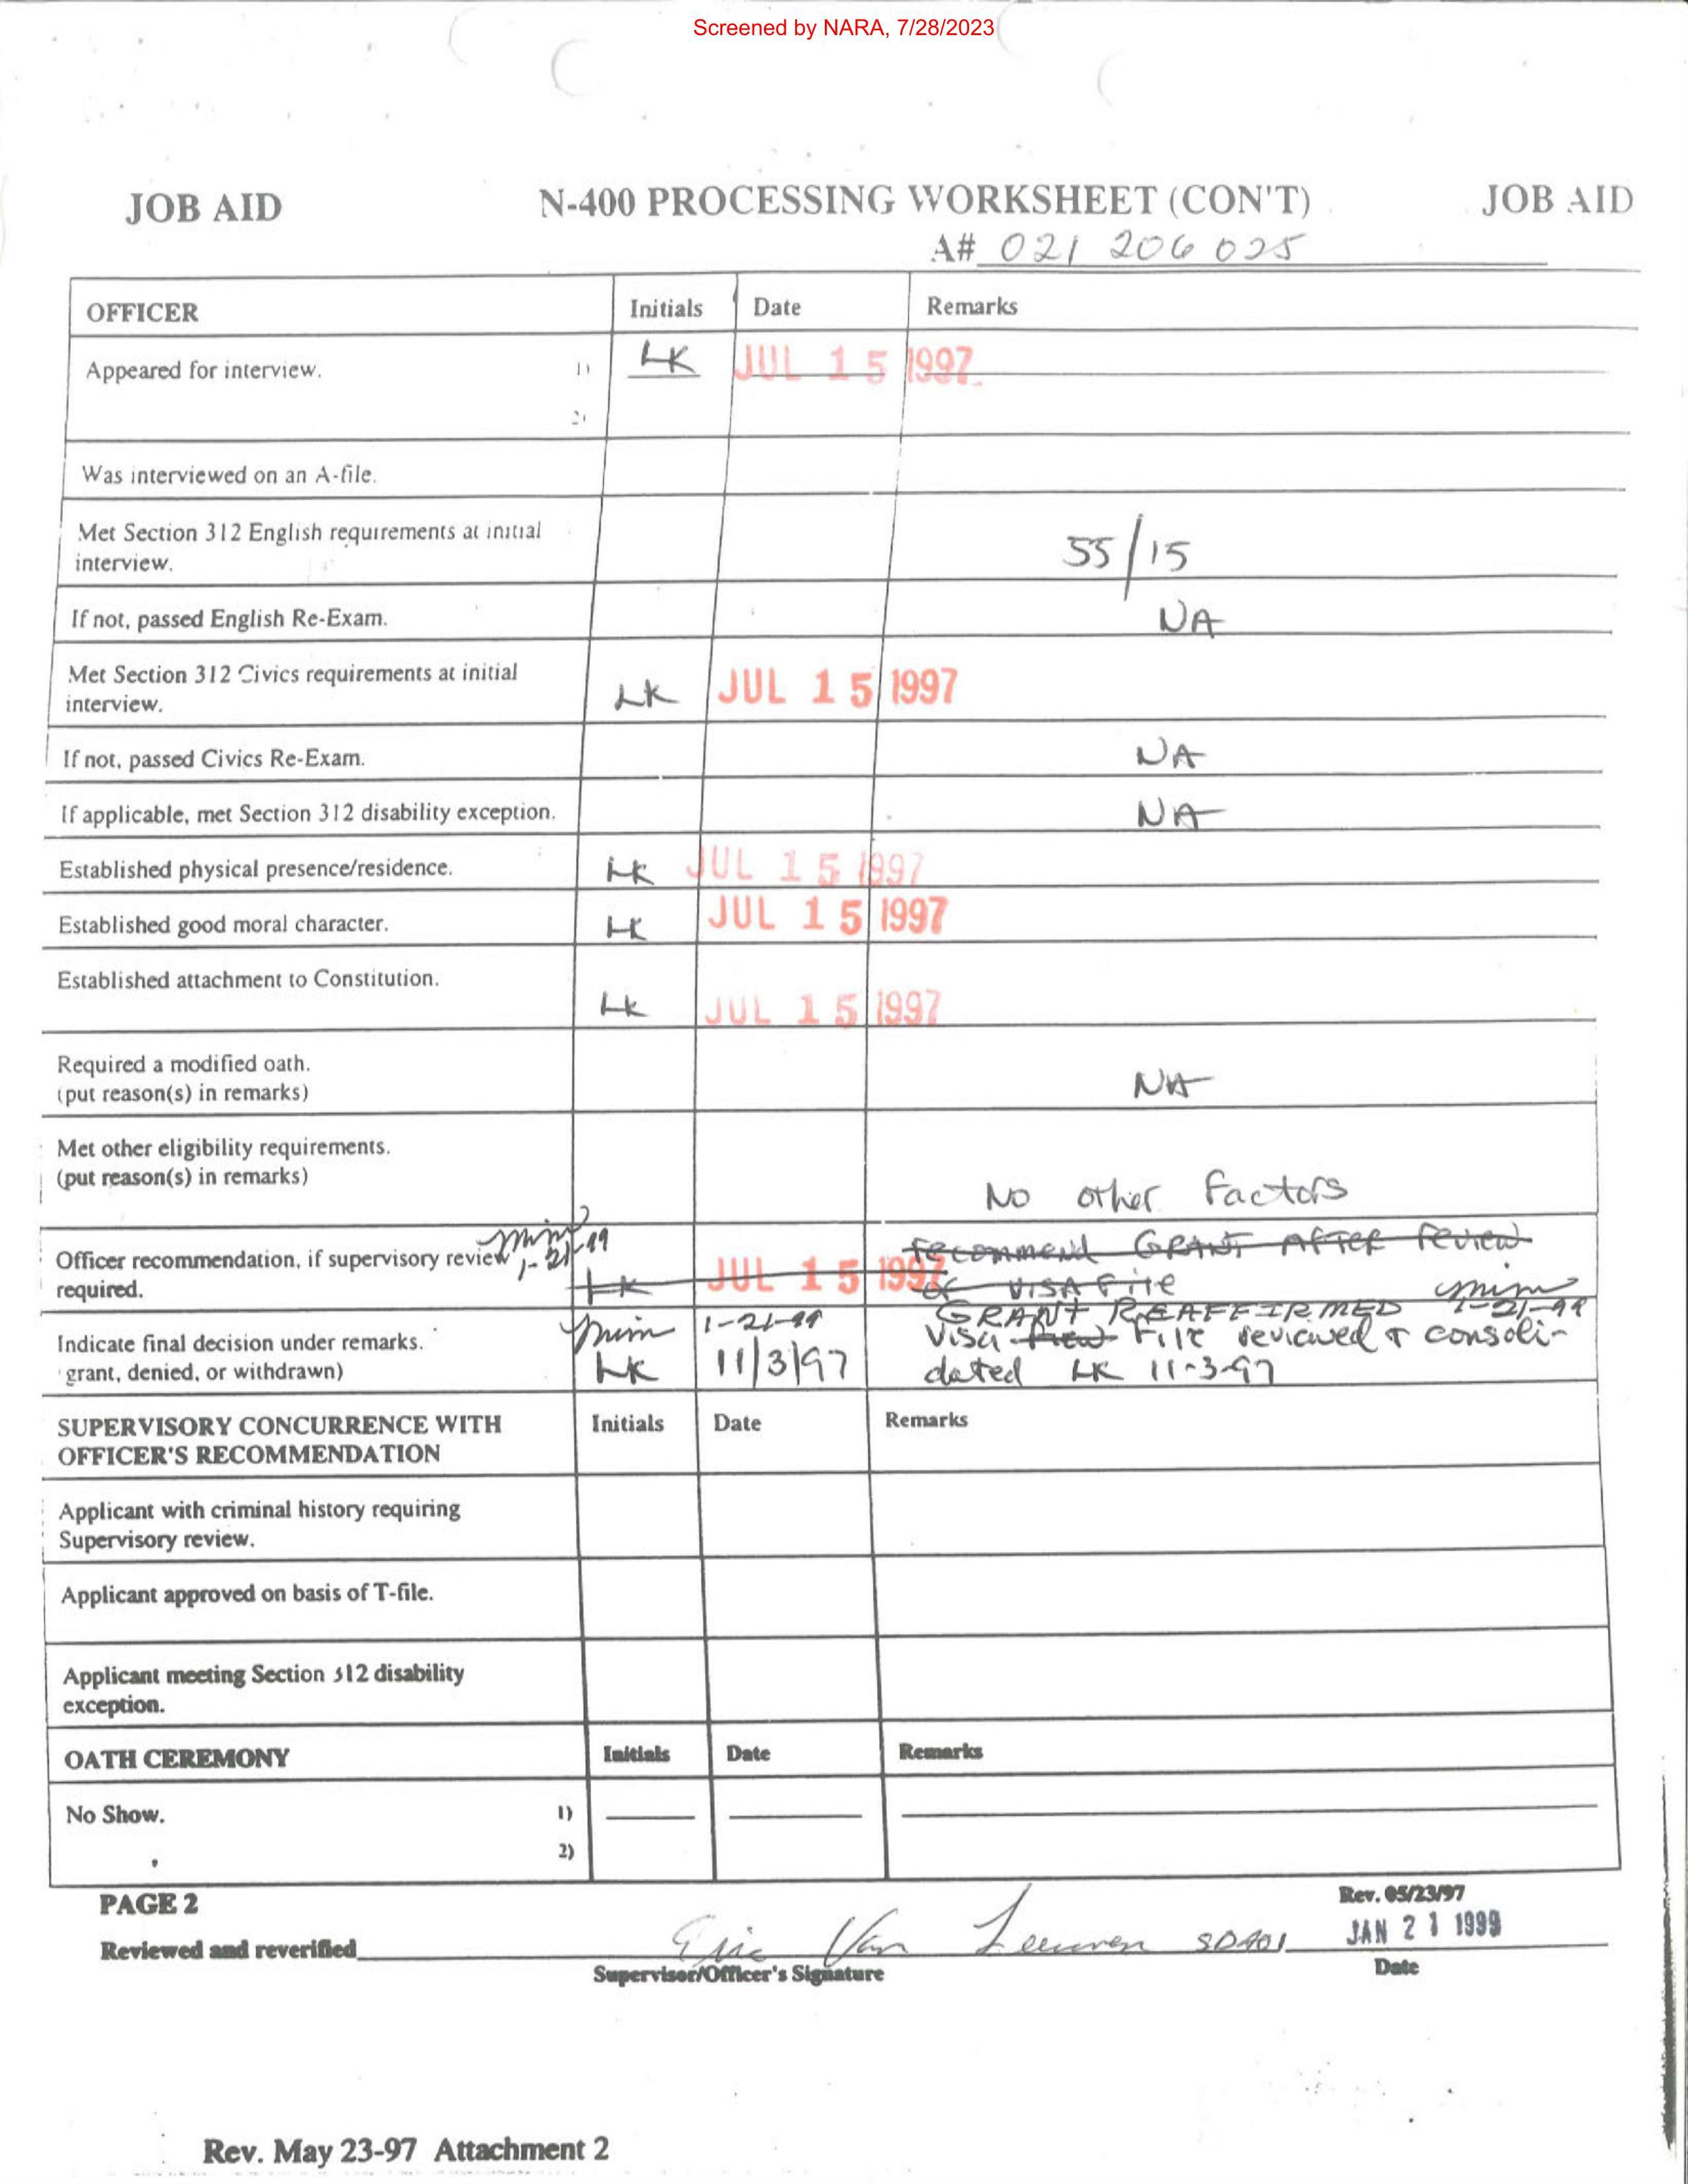 Screened by NARA, 7/28/2023
JOB AID N-400 PROCESSING WORKSHEET (CON'T) JOB AID
A# 021 206 025
OFFICER Initials Date Remarks
Appeared for interview. 1) LK JUL 15 1997
2)
Was interviewed on an A-file.
Met Section 312 English requirements at initial
interview. 55/15
If not, passed English Re-Exam. NA
Met Section 312 Civics requirements at initial
interview. LK JUL 15 1997
If not, passed Civics Re-Exam. NA
If applicable, met Section 312 disability exception. NA
Established physical presence/residence. LK JUL 15 1997
Established good moral character. LK JUL 15 1997
Established attachment to Constitution.
LK JUL 15 1997
Required a modified oath.
(put reason(s) in remarks) NA
Met other eligibility requirements.
(put reason(s) in remarks) No other Factors
Officer recommendation, if supervisory review 1-21-99 recommend GRANT AFTER review
required. LK JUL 15 1997 of VISA File
GRANT REAFFIRMED 1-21-99
Indicate final decision under remarks. 1-21-99 Visa File reviewed & consoli-
grant, denied, or withdrawn) LK 11/3/97 dated LK 11-3-97
SUPERVISORY CONCURRENCE WITH Initials Date Remarks
OFFICER'S RECOMMENDATION
Applicant with criminal history requiring
Supervisory review.
Applicant approved on basis of T-file.
Applicant meeting Section 312 disability
exception.
OATH CEREMONY Initials Date Remarks
No Show. 1)
2)
PAGE 2 Rev. 05/23/97
Reviewed and reverified Eric Van Leeuwen JAN 21 1999
Supervisor/Officer's Signature Date
Rev. May 23-97 Attachment 2